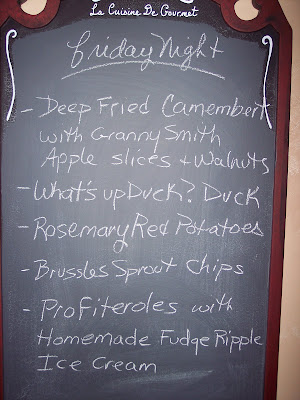 La Cuisine De Gourmet
Friday Night
- Deep Fried Camembert
with Granny Smith
Apple slices + Walnuts
- What's up Duck? Duck
- Rosemary Red Potatoes
- Brussles Sprout Chips
- Profiteroles with
Homemade Fudge Ripple
Ice Cream